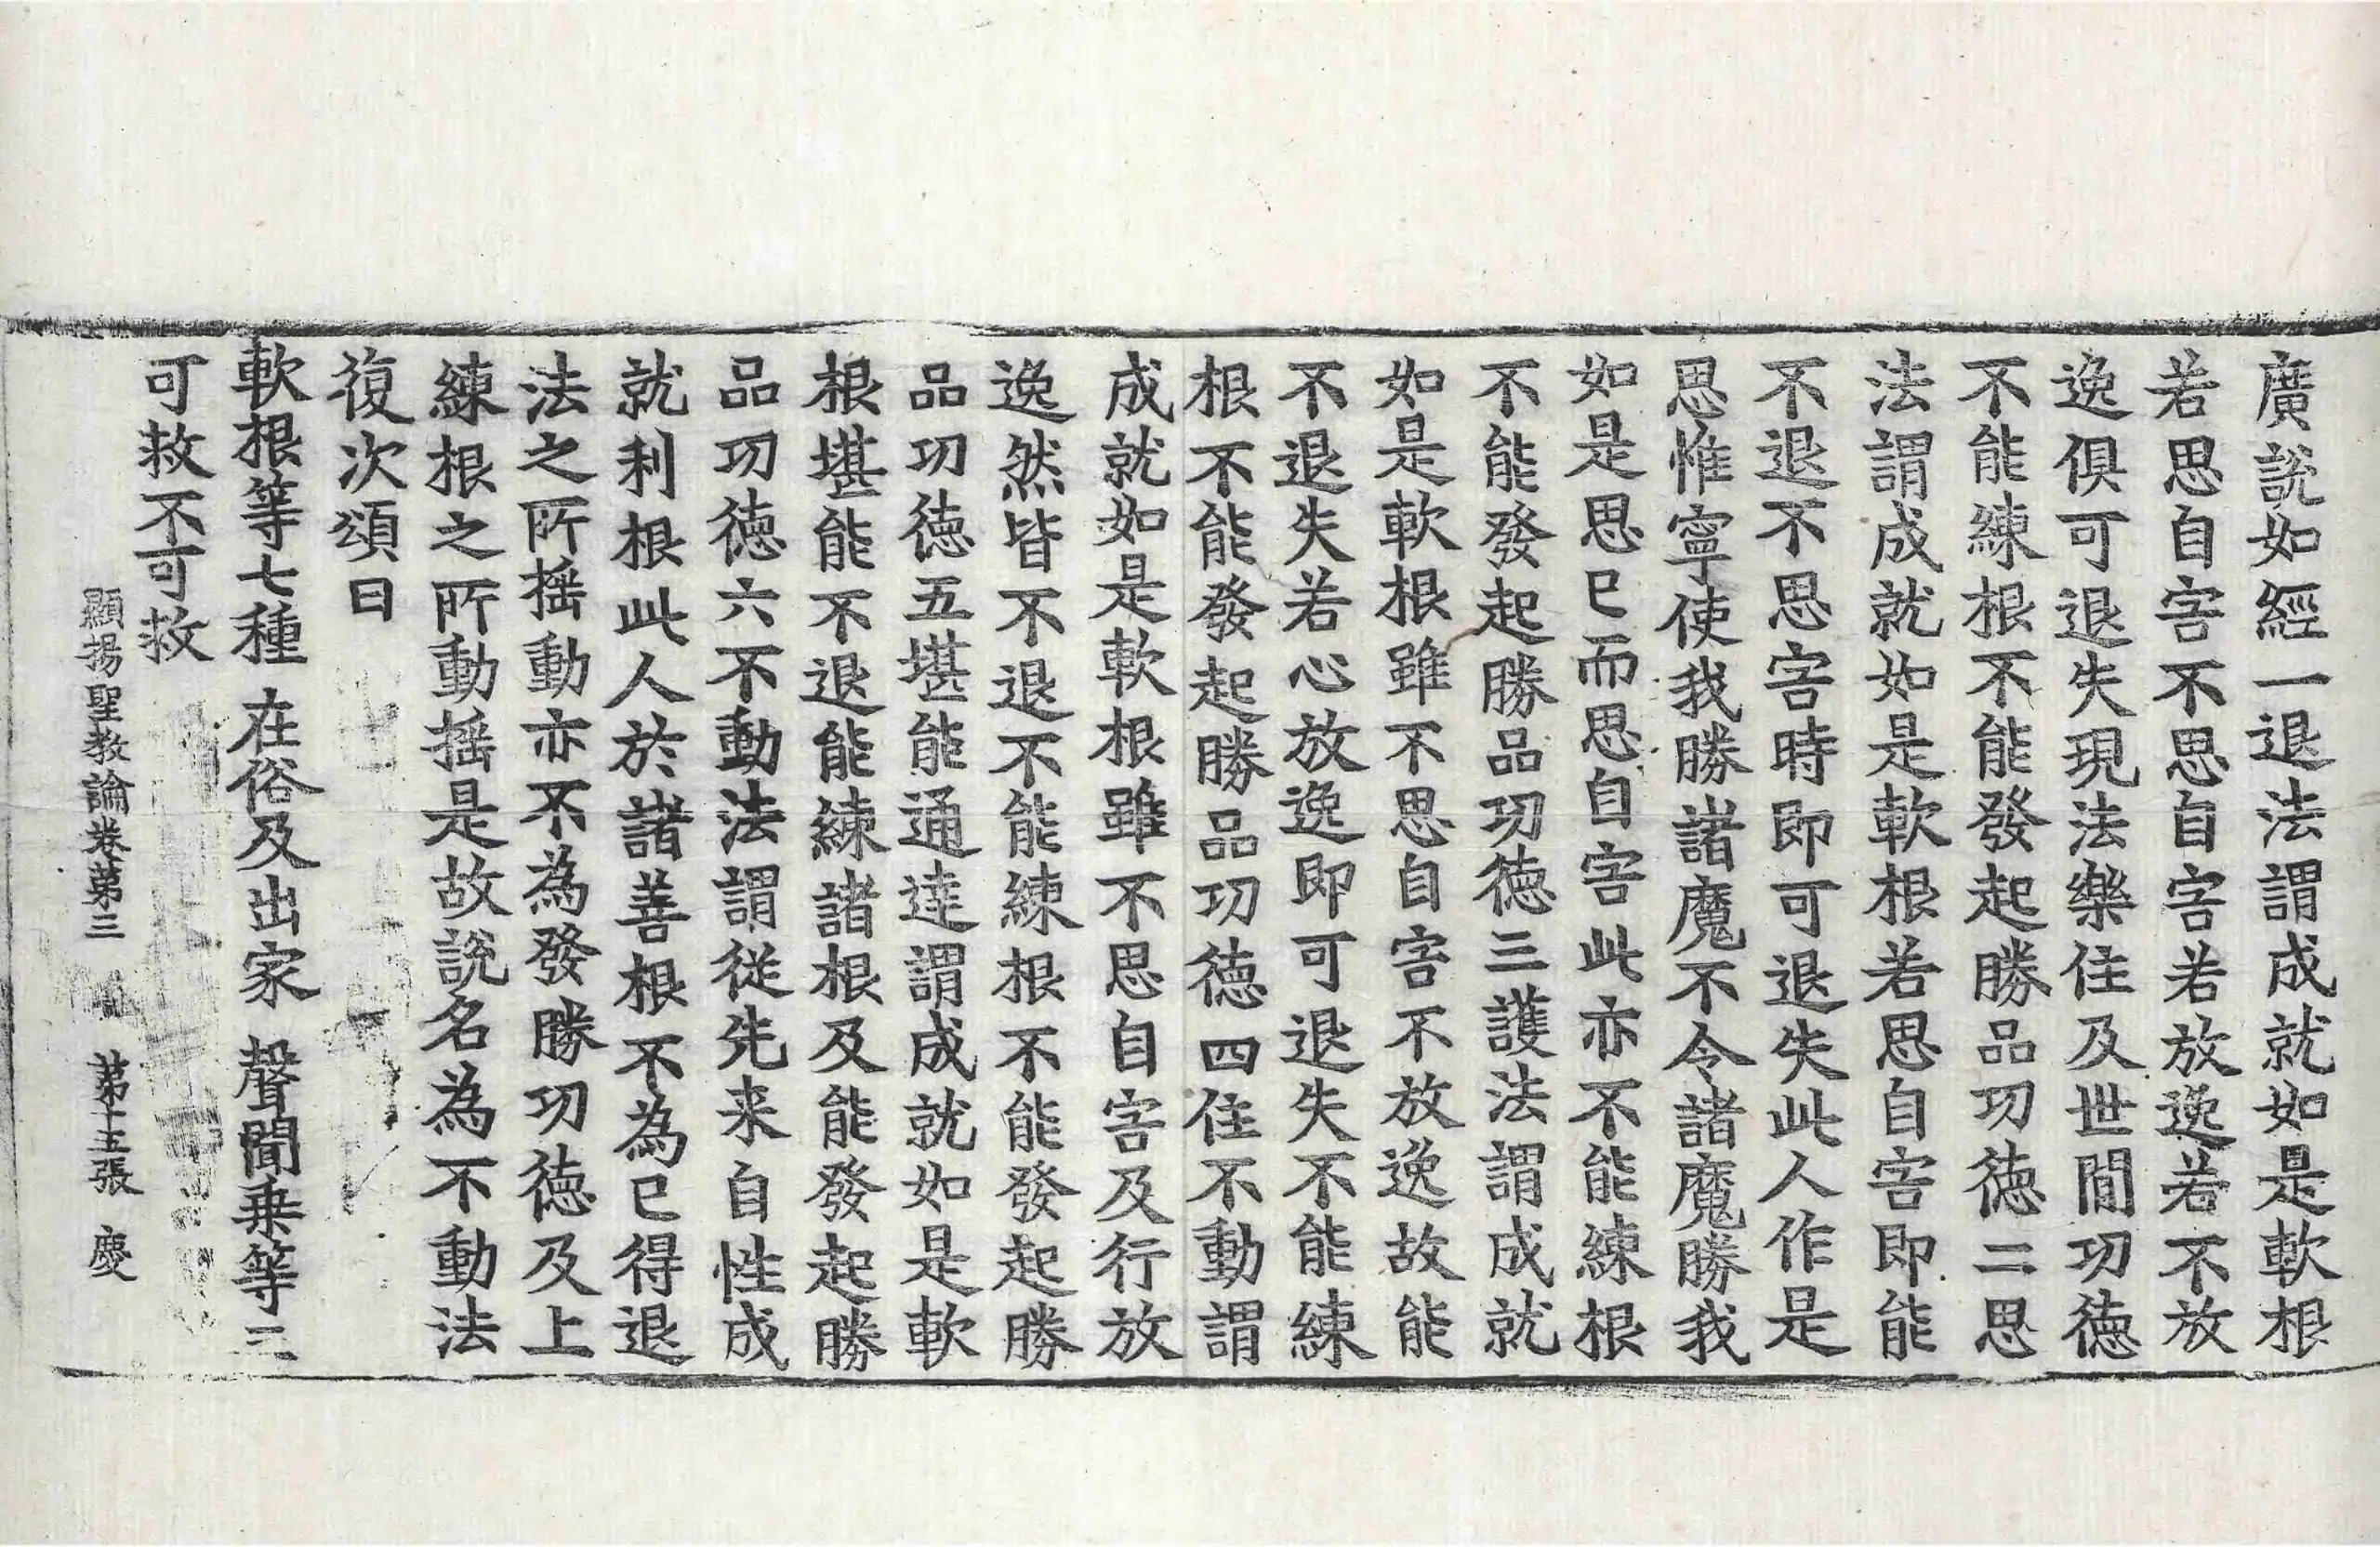 廣說如經一退法謂成就如是軟根
若思自害不思自害若放逸若不放
逸俱可退失現法樂住及世間功德
不能練根不能發起勝品功德二思
法謂成就如是軟根若思自害即能
不退不思害時即可退失此人作是
思惟寧使我勝諸魔不令諸魔勝我
如是思已而思自害此亦不能練根
不能發起勝品功德三護法謂成就
如是軟根雖不思自害不放逸故能
不退失若心放逸即可退失不能練
根不能發起勝品功德四住不動謂
成就如是軟根雖不思自害及行放
逸然皆不退不能練根不能發起勝
品功德五堪能通達謂成就如是軟
根堪能不退能練諸根及能發起勝
品功德六不動法謂從先来自性成
就利根此人於諸善根不為已得退
法之所揺動亦不為發勝功德及上
練根之所動揺是故說名為不動法
復次頌曰
軟根等七種 在俗及出家 聲聞乗等三
可救不可救
顯揚聖教論卷第三 第十五張 慶